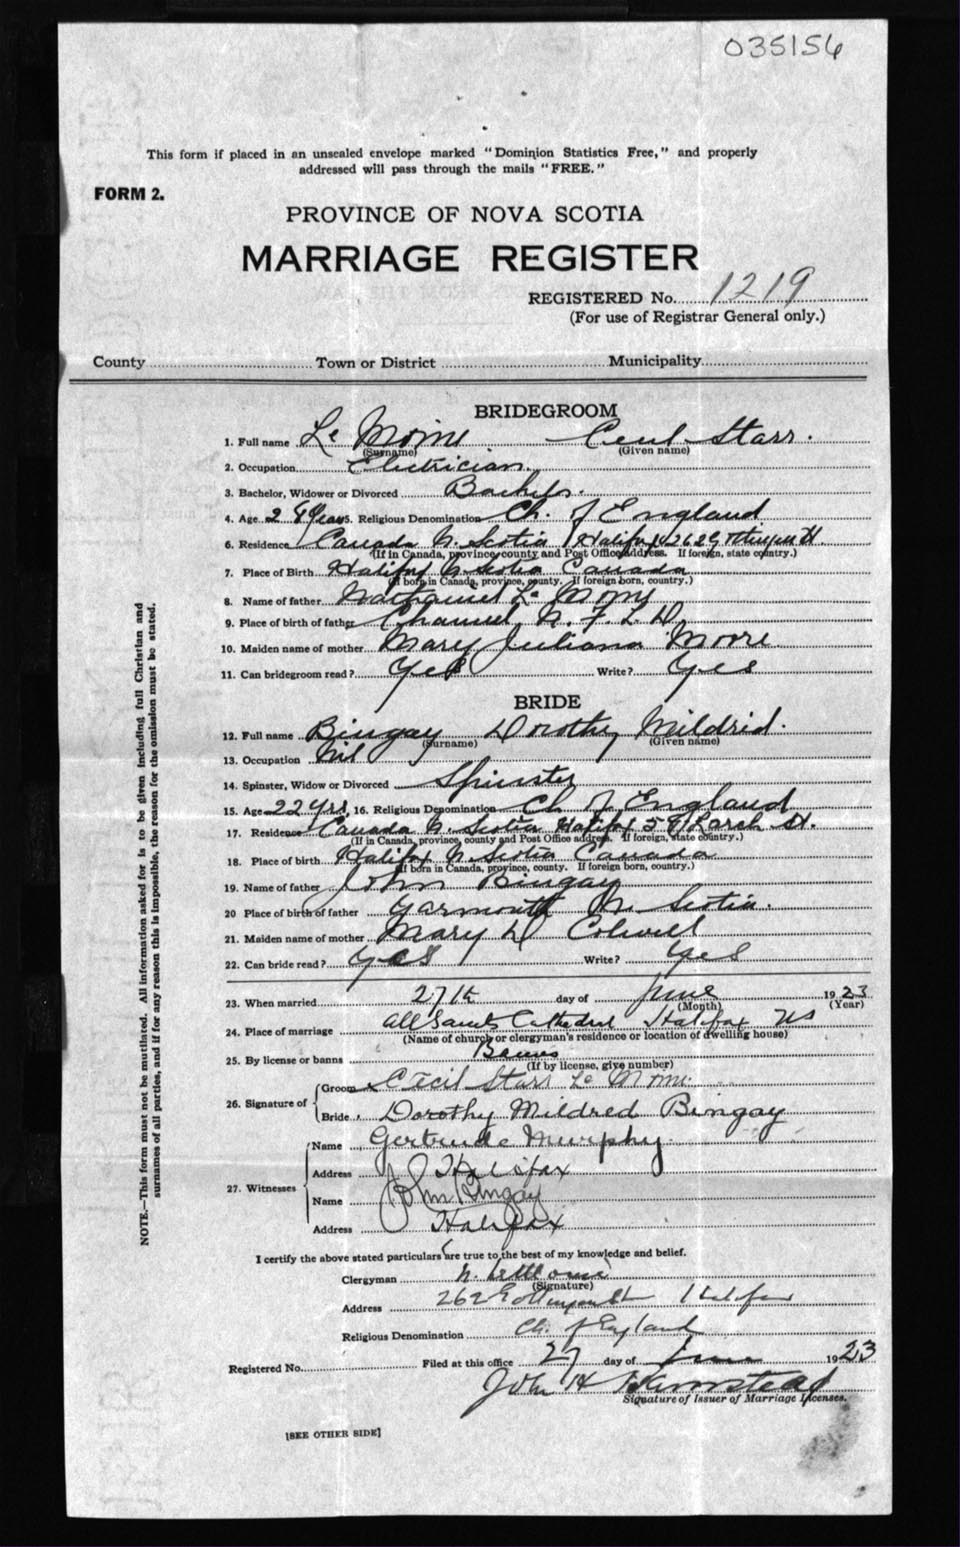 035156
This form if placed in an unsealed envelope marked "Dominion Statistics Free," and properly
addressed will pass through the mails "FREE."
FORM 2.
PROVINCE OF NOVA SCOTIA
MARRIAGE REGISTER
REGISTERED No. 1219
(For use of Registrar General only.)
County Town or District Municipality
BRIDEGROOM
1. Full name Le Moine Cecil Starr.
(Surname) (Given name)
2. Occupation Electrician.
3. Bachelor, Widower or Divorced Bachelor.
4. Age 28 Years 5. Religious Denomination Ch. of England
6. Residence Canada N. Scotia Halifax 262 Gottingen St.
(If in Canada, province, county and Post Office address. If foreign, state country.)
7. Place of Birth Halifax N. Scotia Canada
(If born in Canada, province, county. If foreign born, country.)
8. Name of father Nathaniel Le Moine
9. Place of birth of father Channel, N. F. L. D.
10. Maiden name of mother Mary Juliana Moore
11. Can bridegroom read? Yes Write? Yes
BRIDE
12. Full name Bingay Dorothy Mildrid.
(Surname) (Given name)
13. Occupation Nil
14. Spinster, Widow or Divorced Spinster
15. Age 22 Yrs, 16. Religious Denomination Ch of England
17. Residence Canada N. Scotia Halifax Larch St.
(If in Canada, province, county and Post Office address. If foreign, state country.)
18. Place of birth Halifax N. Scotia Canada
(If born in Canada, province, county. If foreign born, country.)
19. Name of father John Bingay
20 Place of birth of father Yarmouth N. Scotia.
21. Maiden name of mother Mary D Colwell
22. Can bride read? Yes Write? Yes
23. When married 27th day of June 1923
(Month) (Year)
24. Place of marriage All Saints Cathedral Halifax NS
(Name of church or clergyman's residence or location of dwelling house)
25. By license or banns Banns
(If by license, give number)
26. Signature of Groom Cecil Starr Le Moine.
Bride Dorothy Mildred Bingay
27. Witnesses Name Gertrude Murphy
Address Halifax
Name John Bingay
Address Halifax
I certify the above stated particulars are true to the best of my knowledge and belief.
Clergyman N. LeMoine
(Signature)
Address 262 Gottingen St Halifax
Religious Denomination Ch. of England
Registered No. Filed at this office 27 day of June 1923
John H
Signature of Issuer of Marriage Licenses.
[SEE OTHER SIDE]
NOTE.—This form must not be mutilated. All information asked for is to be given including full Christian and
surnames of all parties, and if for any reason this is impossible, the reason for the omission must be stated.